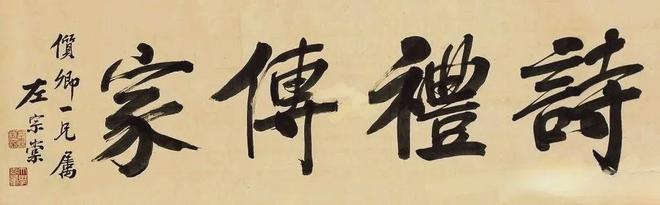 詩禮傳家
質卿一兄屬
左宗棠